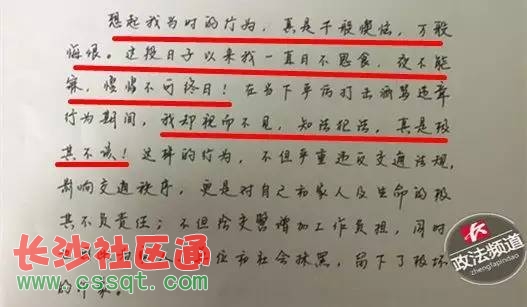 想起我当时的行为,真是千般懊恼,万般
悔恨。这段日子以来我一直日不思食,夜不能
寐,惶惶不可终日!在当下严厉打击酒驾违章
行为期间,我却视而不见,知法犯法,真是极
其不该!这样的行为,不但严重违反交通法规,
影响交通秩序,更是对自己和家人及生命的极
其不负责任;不但给交警增加工作负担,同时
位和社会抹黑,留下了极坏
的印象。
长沙社区通
www.cssqt.com
长
政法频道
zhengfapindao